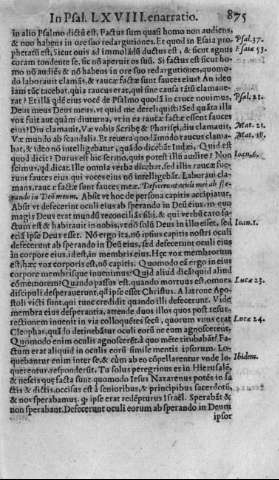 In Psal. LXVIII. enarratio. 875
in alio Psalmo dictũ est. Factus sum quasi homo non audiens,
& non habens in ore suo redargutiones. Et quod in Esaia pro- Psal. 37.
pheta est, sicut ouis ad immolãdũ ductus est, & sicut agnus Esaiæ 53.
coram tondente se, sic nõ aperuit os suũ. Si factus est sicut ho-
mo nõ audiẽs & nõ habens in ore suo redargutiones, quomo-
do laborauit clamãs, & raucæ factæ sunt fauces eius? An ideo
iam tũc tacebat, quia raucus erat, qui sine causa tãtũ clamaue-
rat? Et illã qdẽ eius vocẽ de Psalmo quodã in cruce nouimus, Psal. 21.
Deus meus Deus meus, vt quid me dereliquisti? Sed quãta illa
vox fuit aut quàm diuturna, vt in ea raucæ factæ essent fauces
eius? Diu clamauit, Væ vobis Scribæ & Pharisæi, diu clamauit Mat. 23.
Væ mundo ab scandalis. Et reuera quasi raucus clama- Mat. 18.
bat, & ideo nõ intelligebatur, quãdo dicebãt Iudæi, Quid est
quod dicit? Durus est hic sermo, quis potest illũ audire? Non Ioan. 6.
scimus, qd dicit. Ille omnia verba dicebat, sed illis raucæ fue-
runt fauces eius, qui voces eius nõ intelligebãt. Laboraui cla-
mans, raucæ factæ sunt fauces meæ. Defecerunt oculi mei ab spe-
rando in Deũ meum. Absit vt hoc de persona capitis accipiatur.
Absit vt defecerint oculi eius ab sperando in Deũ eius, in quo
magis Deus erat mundũ reconciliãs sibi, & qui verbũ caro fa-
ctum est & habitauit in nobis, vt nõ solũ Deus in illo esset, sed Ioan. 1.
etiã ipse Deus esset. Nõ ergo ita, nõ ipsius capitis nostri oculi
defecerunt ab sperando in Deũ suum, sed defecerunt oculi eius
in corpore eius, id est, in membris eius. Hęc vox membrorum
est, hæc vox corporis est, nõ capitis. Quomodo ergo in eius
corpore membrisque inuenimus? Quid aliud dicã, quid aliud
cõmemorem? Quando passus est, quando mortuus est, omnes Lucæ 23.
discipuli desperauerunt, quod ipse esset Christus. A latrone Apo-
stoli victi sunt, qui tunc credidit quando illi defecerunt. Vide
membra eius desperantia, attende duos illos quos post resur-
rectionem inuenit in via colloquẽtes secũ, quorum vnus erat Lucæ 24.
Cleophas, quãdo detinebãtur oculi eorũ ne eum agnoscerent.
Quomodo enim oculis agnoscerẽt à quo mẽte titubabãt? Fa-
ctum erat aliquid in oculis eorũ simile mentis ipsorum. Lo-
quebantur enim inter se, & cùm ab eo cõpellarentur vnde lo- Ibidem.
querentur, responderũt, Tu solus peregrinus es in Hierusalẽ,
& nescis quæ facta sunt quomodo Iesus Nazarenus potẽs in fa-
ctis & dictis occisus est à senioribus, & principibus sacerdotũ,
& nos sperabamus, quod ipse erat redẽpturus Israël. Sperabãt &
non sperabant. Defecerunt oculi eorum ab sperando in Deum
ipsor